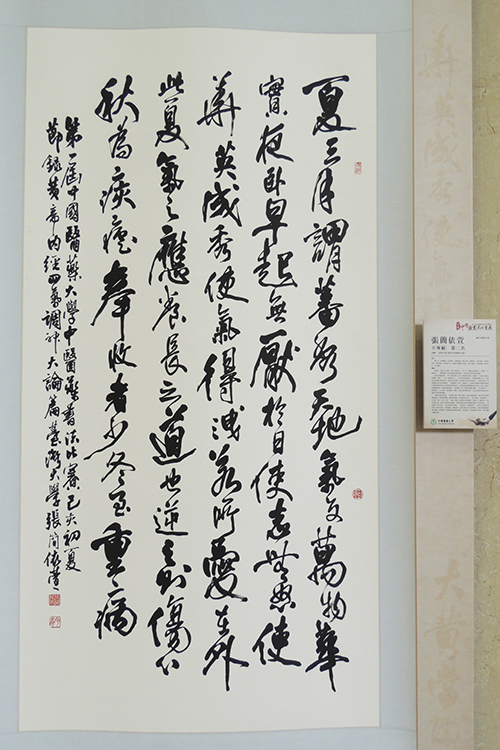 夏三月謂蕃秀天地氣交萬物華
實夜臥早起無厭於日使志無怒使
華英成秀使氣得洩若所愛在外
此夏氣之應養長之道也逆之則傷心
秋為痎瘧奉收者少冬至重病
第一屆中國醫藥大學中醫藥書法比賽己亥初夏
節錄黃帝內經四氣調神大論篇臺灣大學張簡依萱
張簡依萱